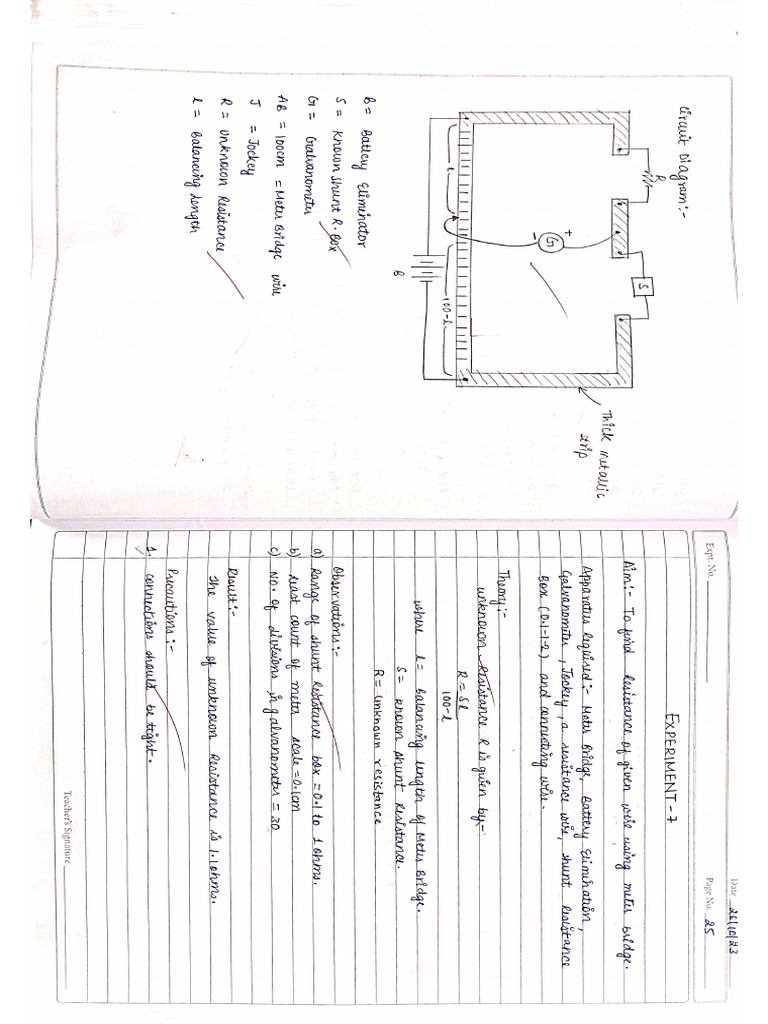 Circuit Diagram:-
R
S
Thick metallic
strip
+
G
-
l
100-l
B
B = Battery Eliminator
S = Known shunt R. Box
G = Galvanometer
AB = 100cm = Meter Bridge wire
J = Jockey
R = unknown Resistance
l = Balancing length
Date 26/10/23
Expt. No.
Page No. 25
EXPERIMENT-7
Aim:- To find resistance of given wire using meter bridge.
Apparatus Required:- Meter Bridge, Battery Elimination,
Galvanometer, Jockey, a resistance wire, shunt resistance
Box (0.1-1-2) and connecting wire.
Theory:-
unknown Resistance R is given by:-
R = Sl
100-l
where l = Balancing length of Meter Bridge.
S = known shunt Resistance.
R = Unknown resistance
Observations:-
a) Range of shunt Resistance box = 0.1 to 1 ohms.
b) least count of meter scale = 0.1cm
c) No. of divisions in galvanometer = 30
Result:-
The value of unknown Resistance is 1.1 ohms.
Precautions:-
1. connections should be tight.
Teacher's Signature